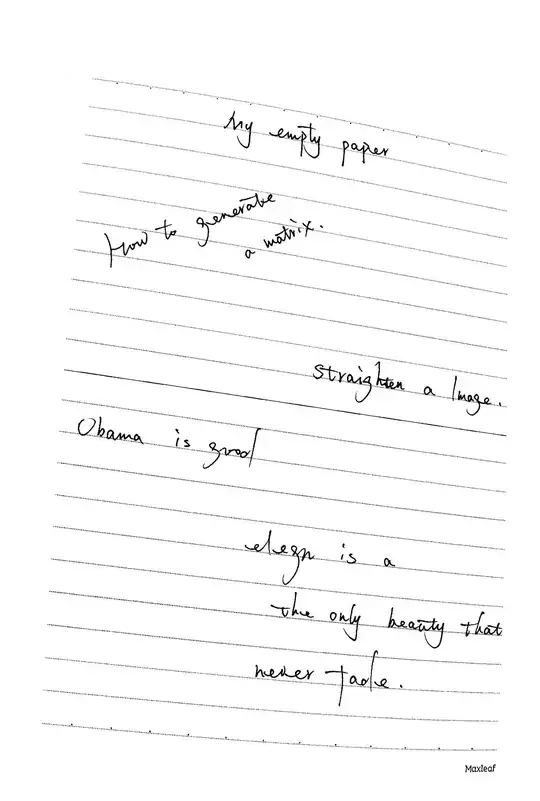 My empty paper
How to generate
a matrix.
straighten a Image.
Obama is good
elegn is a
the only beauty that
never fade.
Maxleaf